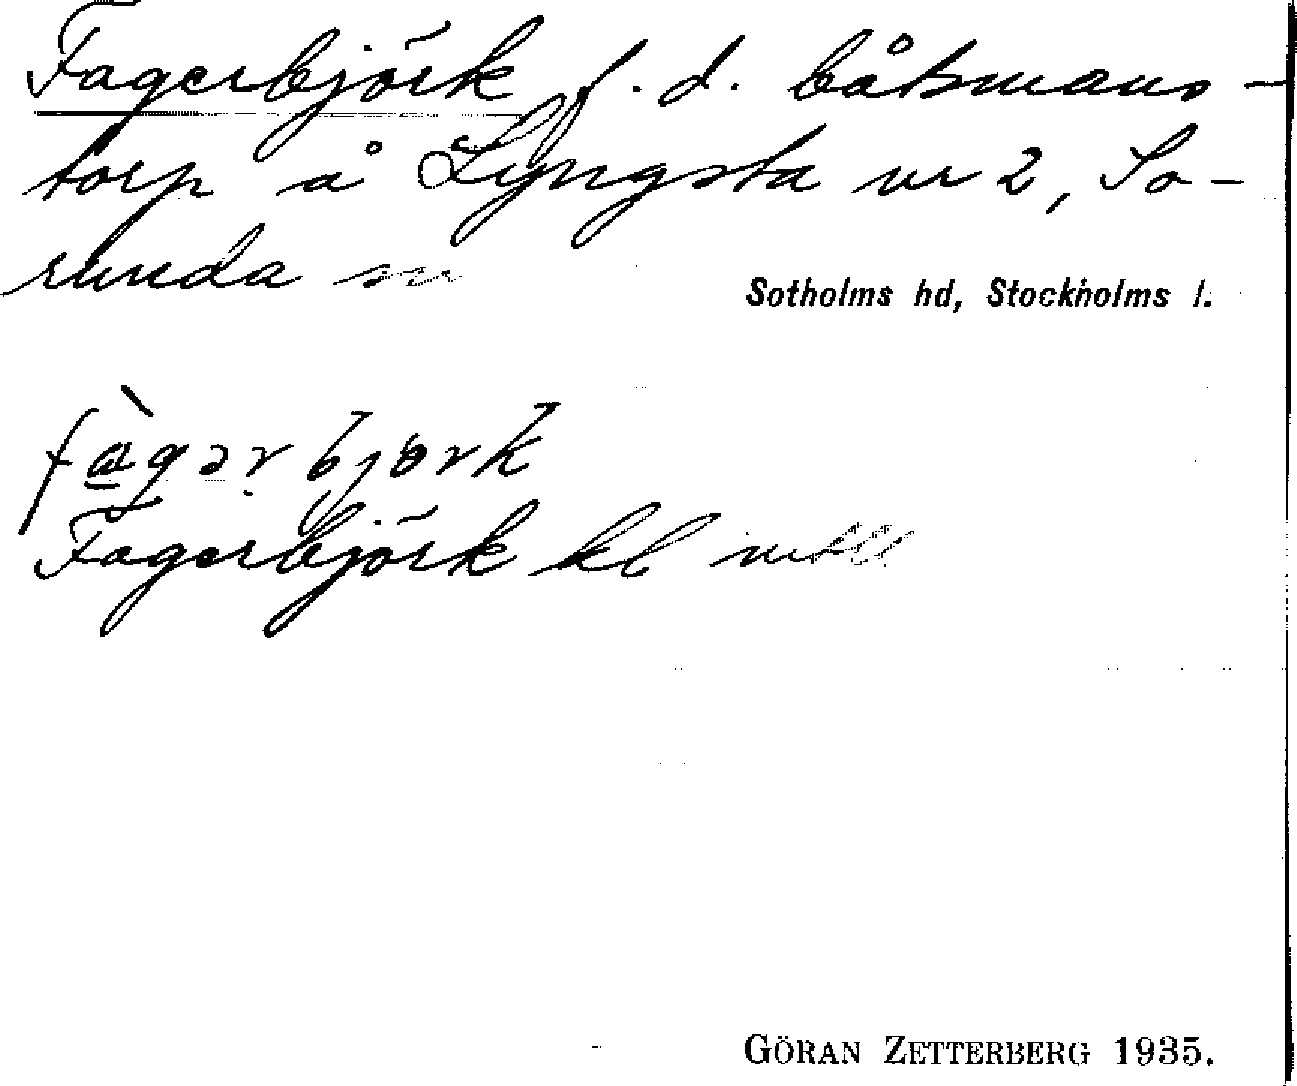 Fagerbjörk f. d. båtsmans-
torp å Lyngsta nr 2, So-
runda sn
Sotholms hd, Stockholms l.
fàgərbjörk
Fagerbjörk kl
GÖRAN ZETTERBERG 1935.